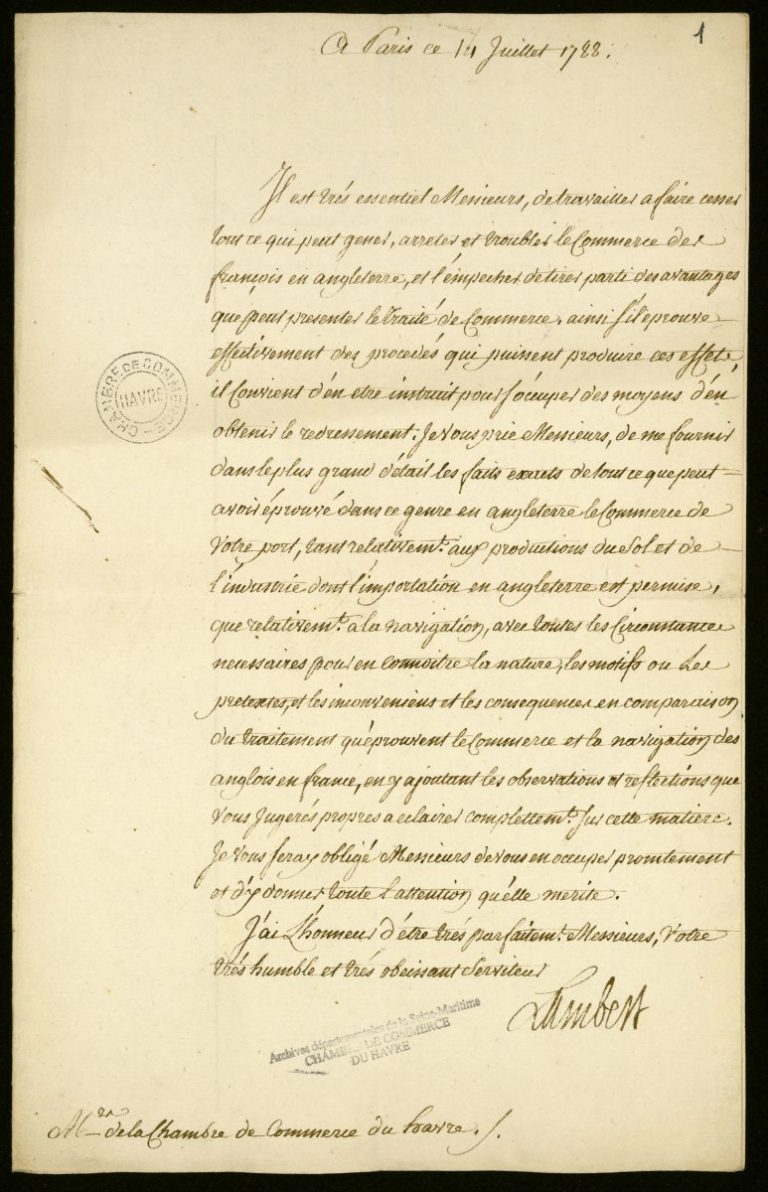 1
A Paris ce 14 Juillet 1788.
Il est trés essentiel Messieurs, de travailler a faire cesser
tout ce qui peut gener, arreter et troubler le Commerce des
françois en angleterre, et l'émpecher de tirer parti des avantages
que peut presenter le Traité de Commerce, ainsi s'il éprouve
effectivement des procedés qui puissent produire ces effets,
il Convient d'én etre instruit pour s'óccuper des moyens d'én
obtenir le redressement. Je Vous prie Messieurs, de me fournir
dans le plus grand détail les faits exacts de tout ce que peut =
avoir éprouvé dans ce genre en angleterre le Commerce de
Votre port, tant relativem.t aux productions du Sol et de
l'índustrie dont l'ímportation en angleterre est permise,
que relativem.t a la navigation, avec toutes les Circonstances
necessaires pour en connoitre la nature, les motifs ou Les
pretextes, et les inconveniens et les consequences en comparaison
du traitement qu'éprouvent le Commerce et la navigation des
anglois en france, en y ajoutant les observations et reflections que
Vous Jugerés propres a eclairer complettem.t sur cette matiere.
Je Vous seray obligé Messieurs de vous en occuper promtement
et d'ÿ donner toute l'attention qu'élle merite.
J'ai L'honneur d'étre trés parfaitem.t Messieurs, Votre
trés humble et trés obeissant Serviteur
Lambert
CHAMBRE DE COMMERCE
HAVRE
Archives départementales de la Seine-Maritime
CHAMBRE DE COMMERCE
DU HAVRE
M.rs de la Chambre de Commerce du havre. /.